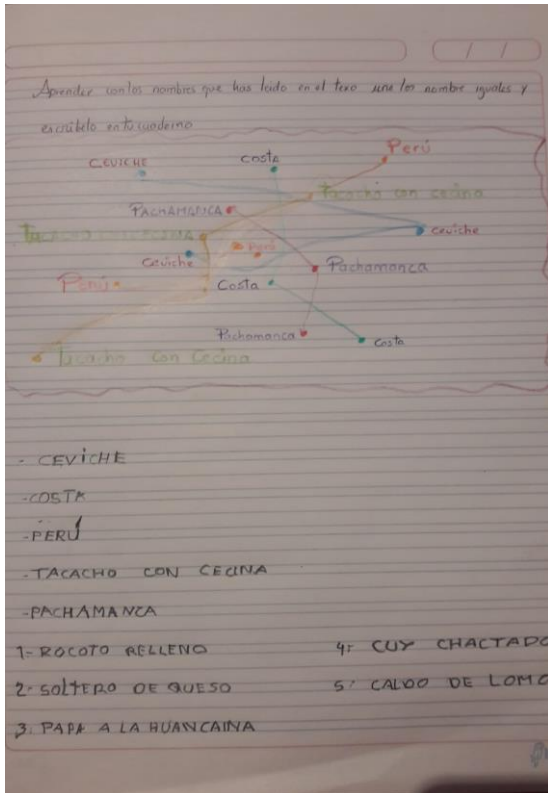 / /
Aprender con los nombres que has leido en el texo une los nombre iguales y
escribelo en tu cuaderno
CEVICHE costa Perú
Tacacho con cecina
PACHAMANCA
TACACHO CON CECINA Perú ceviche
Ceviche Pachamanca
Perú Costa
Pachamanca Costa
Tacacho Con Cecina
- CEVICHE
- COSTA
- PERÚ
- TACACHO CON CECINA
- PACHAMANCA
1- ROCOTO RELLENO 4- CUY CHACTADO
2- SOLTERO DE QUESO 5- CALDO DE LOMO
3. PAPA A LA HUANCAINA